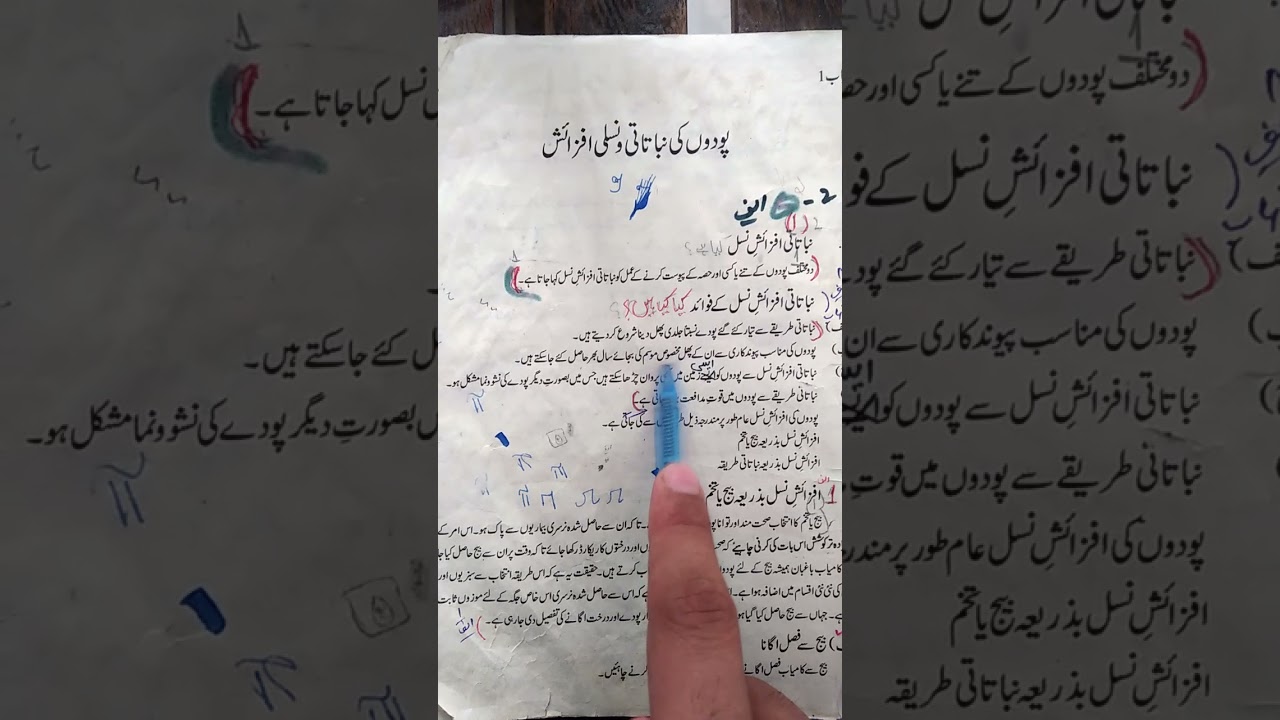 اب 1
پودوں کی نباتاتی و نسلی افزائش
2 - الف
2 (1)
نباتاتی افزائشِ نسل کیا ہے؟
دو مختلف پودوں کے تنے یا کسی اور حصہ کے پیوست کرنے کے عمل کو نباتاتی افزائشِ نسل کہا جاتا ہے۔
نباتاتی افزائشِ نسل کے فوائد کیا کیا ہیں؟
نباتاتی طریقے سے تیار کئے گئے پودے نسبتاً جلدی پھل دینا شروع کر دیتے ہیں۔
پودوں کی مناسب پیوندکاری سے ان کے پھل مخصوص موسم کی بجائے سال بھر حاصل کئے جا سکتے ہیں۔
نباتاتی افزائشِ نسل سے پودوں کو ایسی زمین میں پروان چڑھا سکتے ہیں جس میں بصورتِ دیگر پودے کی نشوونما مشکل ہو۔
نباتاتی طریقے سے پودوں میں قوتِ مدافعت ہے
پودوں کی افزائشِ نسل عام طور پر مندرجہ ذیل سے کی جاتی ہے۔
افزائشِ نسل بذریعہ بیج یا تخم
افزائشِ نسل بذریعہ نباتاتی طریقہ
1 افزائشِ نسل بذریعہ بیج یا تخم
بیج یا تخم کا انتخاب صحت مند اور توانا ۔ تاکہ ان سے حاصل شدہ نرسری بیماریوں سے پاک ہو۔ اس امر کے
دہ تر کوشش اس بات کی کرنی چاہیئے کہ اور درختوں کا ریکارڈ رکھا جائے تاکہ وقت پر ان سے بیج حاصل کیا جا
کامیاب باغبان ہمیشہ بیج کے لئے پودوں کرتے ہیں۔ حقیقت یہ ہے کہ اس طریقہ انتخاب سے سبزیوں اور
کی نئی نئی اقسام میں اضافہ ہوا ہے۔ ہے کہ اس سے حاصل شدہ نرسری اس خاص جگہ کے لئے موزوں ثابت
ہے۔ جہاں سے بیج حاصل کیا گیا ہو پودے اور درخت اگانے کی تفصیل دی جا رہی ہے۔
بیج سے فصل اگانا
بیج سے کامیاب فصل اگانے کرنے چاہئیں۔